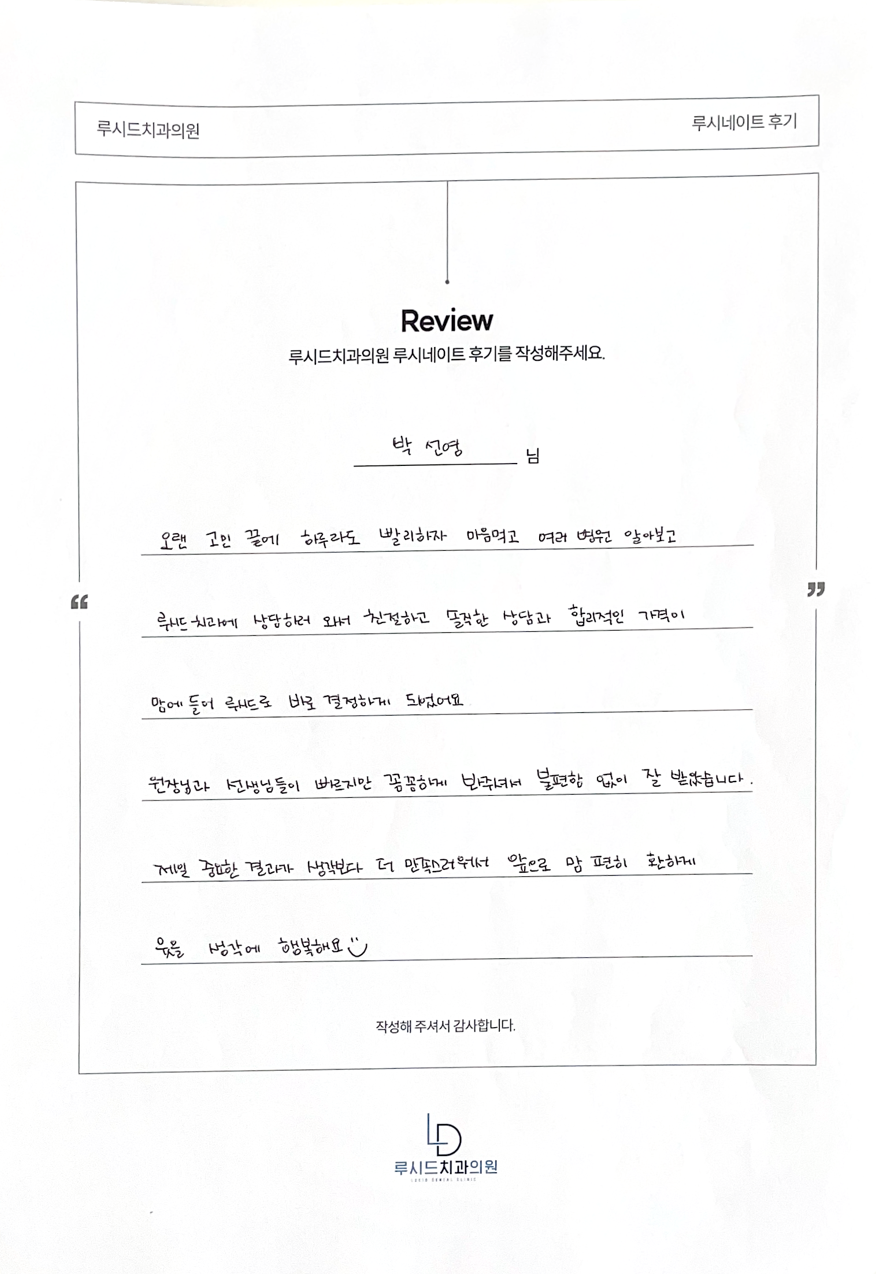 루시드치과의원
루시네이트 후기
Review
루시드치과의원 루시네이트 후기를 작성해주세요.
박 선영 님
오랜 고민 끝에 하루라도 빨리하자 마음먹고 여러 병원 알아보고
“ ”
루시드치과에 상담하러 와서 친절하고 똑똑한 상담과 합리적인 가격이
맘에 들어 루시드로 바로 결정하게 되었어요
원장님과 선생님들이 빠르지만 꼼꼼하게 봐주셔서 불편함 없이 잘 받았습니다.
제일 중요한 결과가 생각보다 더 만족스러워서 앞으로 맘 편히 환하게
웃을 생각에 행복해요
작성해 주셔서 감사합니다.
LD
루시드치과의원
LUCID DENTAL CLINIC